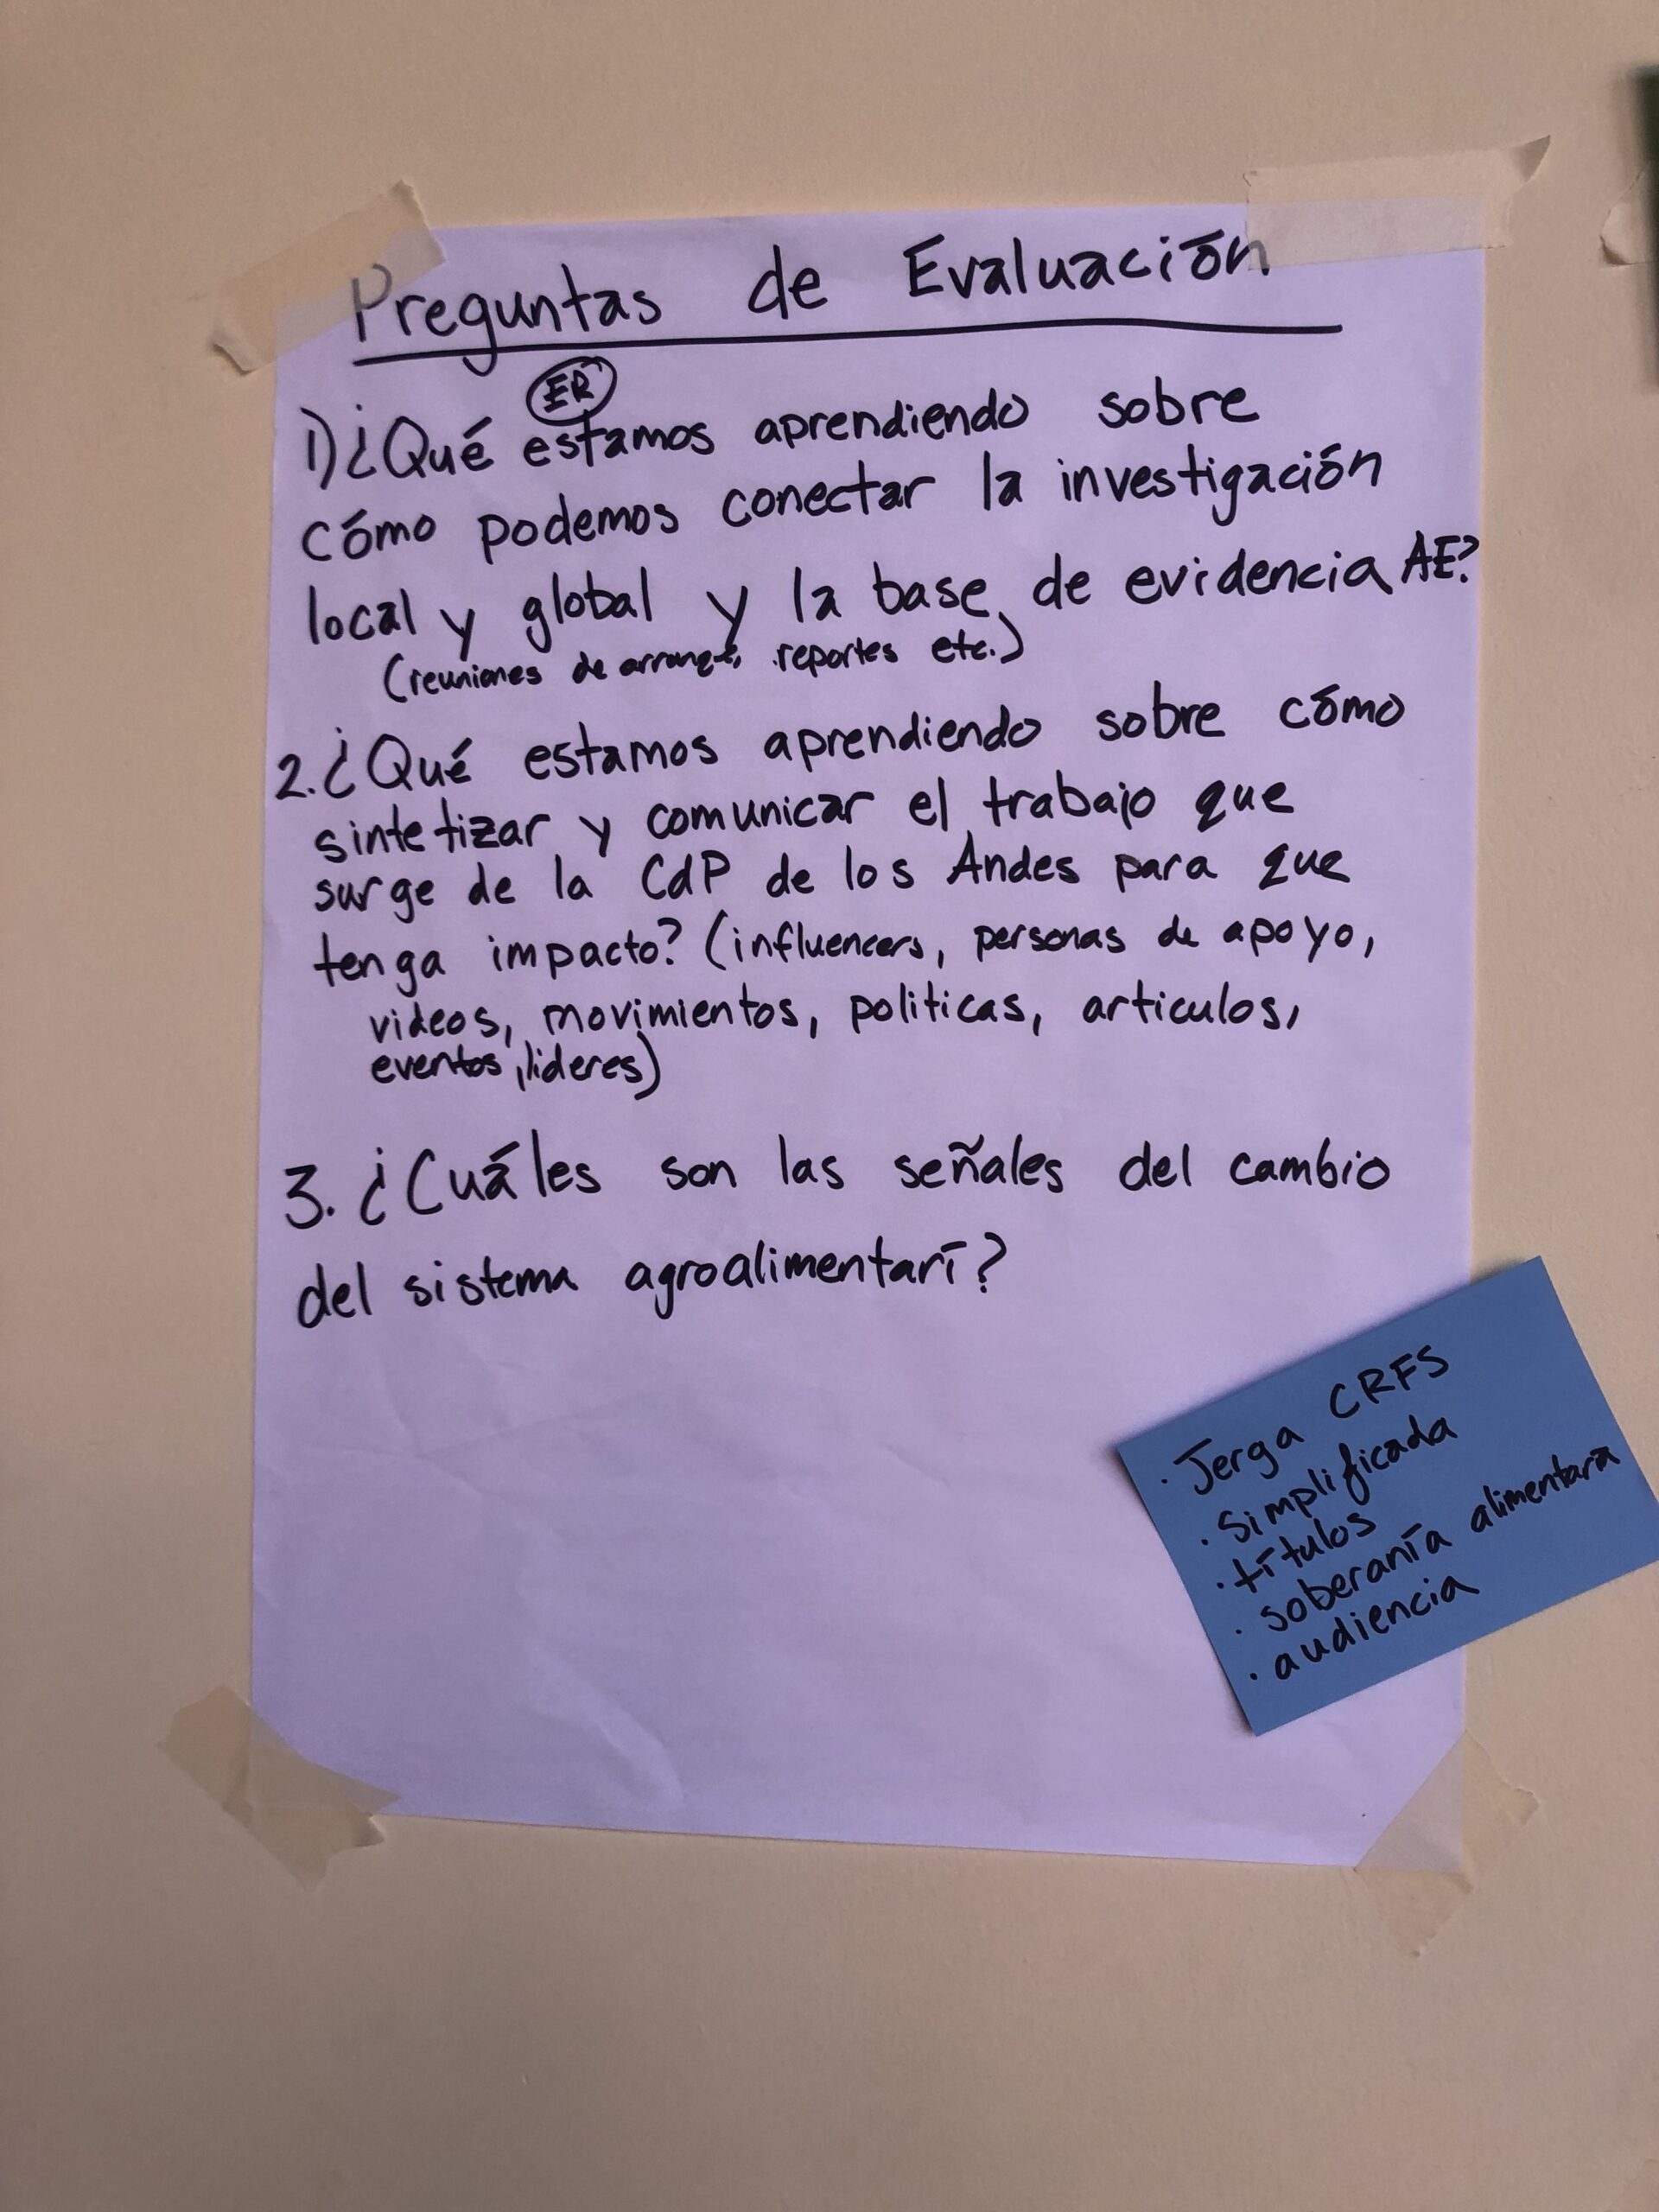 Preguntas de Evaluación
ER
1) ¿Qué estamos aprendiendo sobre
cómo podemos conectar la investigación
local y global y la base de evidencia AE?
(reuniones de arranque, reportes etc.)
2. ¿Qué estamos aprendiendo sobre cómo
sintetizar y comunicar el trabajo que
surge de la CdP de los Andes para que
tenga impacto? (influencers, personas de apoyo,
videos, movimientos, politicas, articulos,
eventos, lideres)
3. ¿Cuáles son las señales del cambio
del sistema agroalimentari?
· Jerga CRFS
· Simplificada
· títulos
· soberanía alimentara
· audiencia